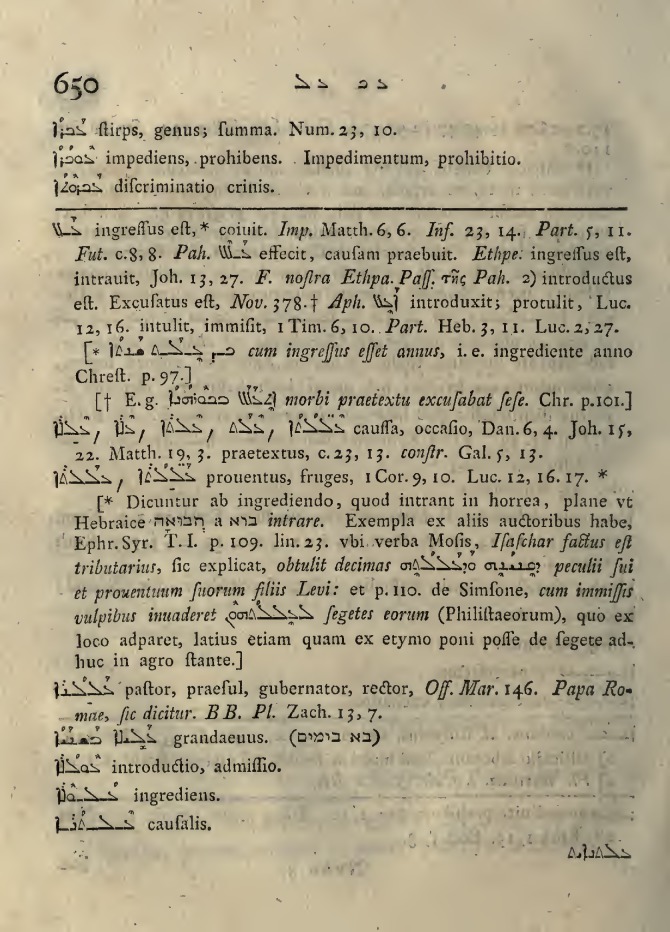 650 ܥܟ ܥܠ
ܥܟܪܐ ſtirps, genus; ſumma. Num. 23, 10.
ܥܘܟܪܐ impediens, prohibens. Impedimentum, prohibitio.
ܥܟܪܘܬܐ diſcriminatio crinis.
ܥܠܠ ingreſſus eſt,* coiuit. Imp. Matth. 6, 6. Inf. 23, 14. Part. 5, 11.
Fut. c. 8, 8. Pah. ܥܠܠ effecit, cauſam praebuit. Ethpe. ingreſſus eſt,
intrauit, Joh. 13, 27. F. noſtra Ethpa. Paſſ. τῆς Pah. 2) introductus
eſt. Excuſatus eſt, Nov. 378.† Aph. ܐܥܠ introduxit; protulit, Luc.
12, 16. intulit, immiſit, 1 Tim. 6, 10. Part. Heb. 3, 11. Luc. 2, 27.
[* ܟܕ ܥܠܠܬ ܫܢܬܐ cum ingreſſus eſſet annus, i. e. ingrediente anno
Chreſt. p. 97.]
[† E. g. ܐܬܥܠܠ ܒܟܘܪܗܢܐ morbi praetextu excuſabat ſeſe. Chr. p. 101.]
ܥܠܠܐ, ܥܠܐ, ܥܠܬܐ, ܥܠܬ, ܥܠܠܬܐ cauſſa, occaſio, Dan. 6, 4. Joh. 15,
22. Matth. 19, 3. praetextus, c. 23, 13. conſtr. Gal. 5, 13.
ܥܠܠܬܐ, ܥܠܠܬܐ prouentus, fruges, 1 Cor. 9, 10. Luc. 12, 16. 17. *
[* Dicuntur ab ingrediendo, quod intrant in horrea, plane vt
Hebraice תבואה a בוא intrare. Exempla ex aliis auctoribus habe,
Ephr. Syr. T. I. p. 109. lin. 23. vbi verba Moſis, Iſaſchar factus eſt
tributarius, ſic explicat, obtulit decimas ܕܩܢܝܢܗ ܘܕܥܠܠܬܗ peculii ſui
et prouentuum ſuorum filiis Levi: et p. 110. de Simſone, cum immiſſis
vulpibus inuaderet ܥܠܠܬܗܘܢ ſegetes eorum (Philiſtaeorum), quo ex
loco adparet, latius etiam quam ex etymo poni poſſe de ſegete ad-
huc in agro ſtante.]
ܥܠܠܢܐ paſtor, praeſul, gubernator, rector, Off. Mar. 146. Papa Ro-
mae, ſic dicitur. B B. Pl. Zach. 13, 7.
ܥܠܠܐ ܒܫܢܝܐ grandaeuus. (בא בימים)
ܥܘܠܠܐ introductio, admiſſio.
ܥܠܘܠܐ ingrediens.
ܥܠܬܢܝܐ cauſalis.
ܥܠܬܢܐܝܬ